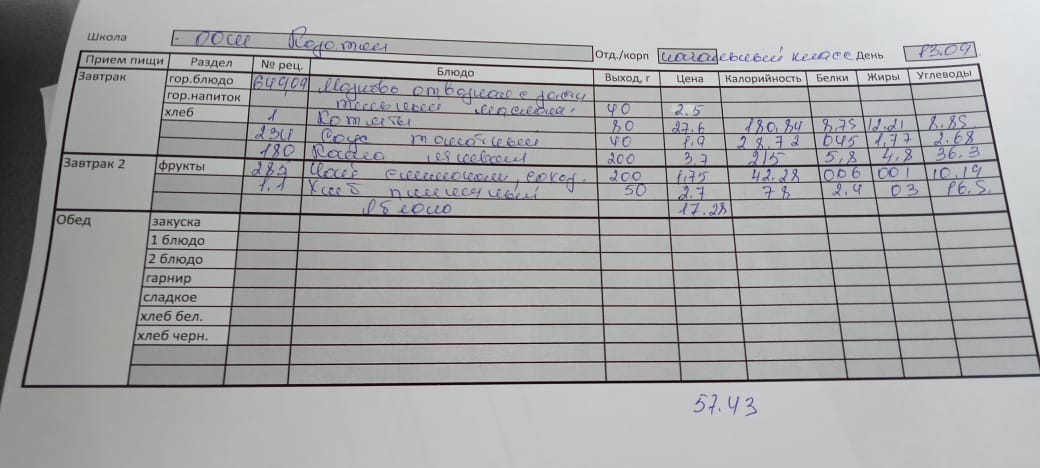 Школа - ООШ Отд./корп класс День 13.09
Прием пищи Раздел № рец. Блюдо Выход, г Цена Калорийность Белки Жиры Углеводы
Завтрак гор.блюдо 64909 отварная с
гор.напиток маслом 40 2.5
хлеб 1 Котлеты 80 27.6 180,84 8,75 12.21 8.85
234 Соус томатный 40 1.9 28,72 045 1,77 2.68
180 200 3,7 215 5,8 4,8 36.3
Завтрак 2 фрукты 285 Чай с лимоном, сахар. 200 1,75 42.28 006 001 10.19
1.1 Хлеб пшеничный 50 2.7 78 2.4 03 16.5.
Яблоко 17.28
Обед закуска
1 блюдо
2 блюдо
гарнир
сладкое
хлеб бел.
хлеб черн.
57.43